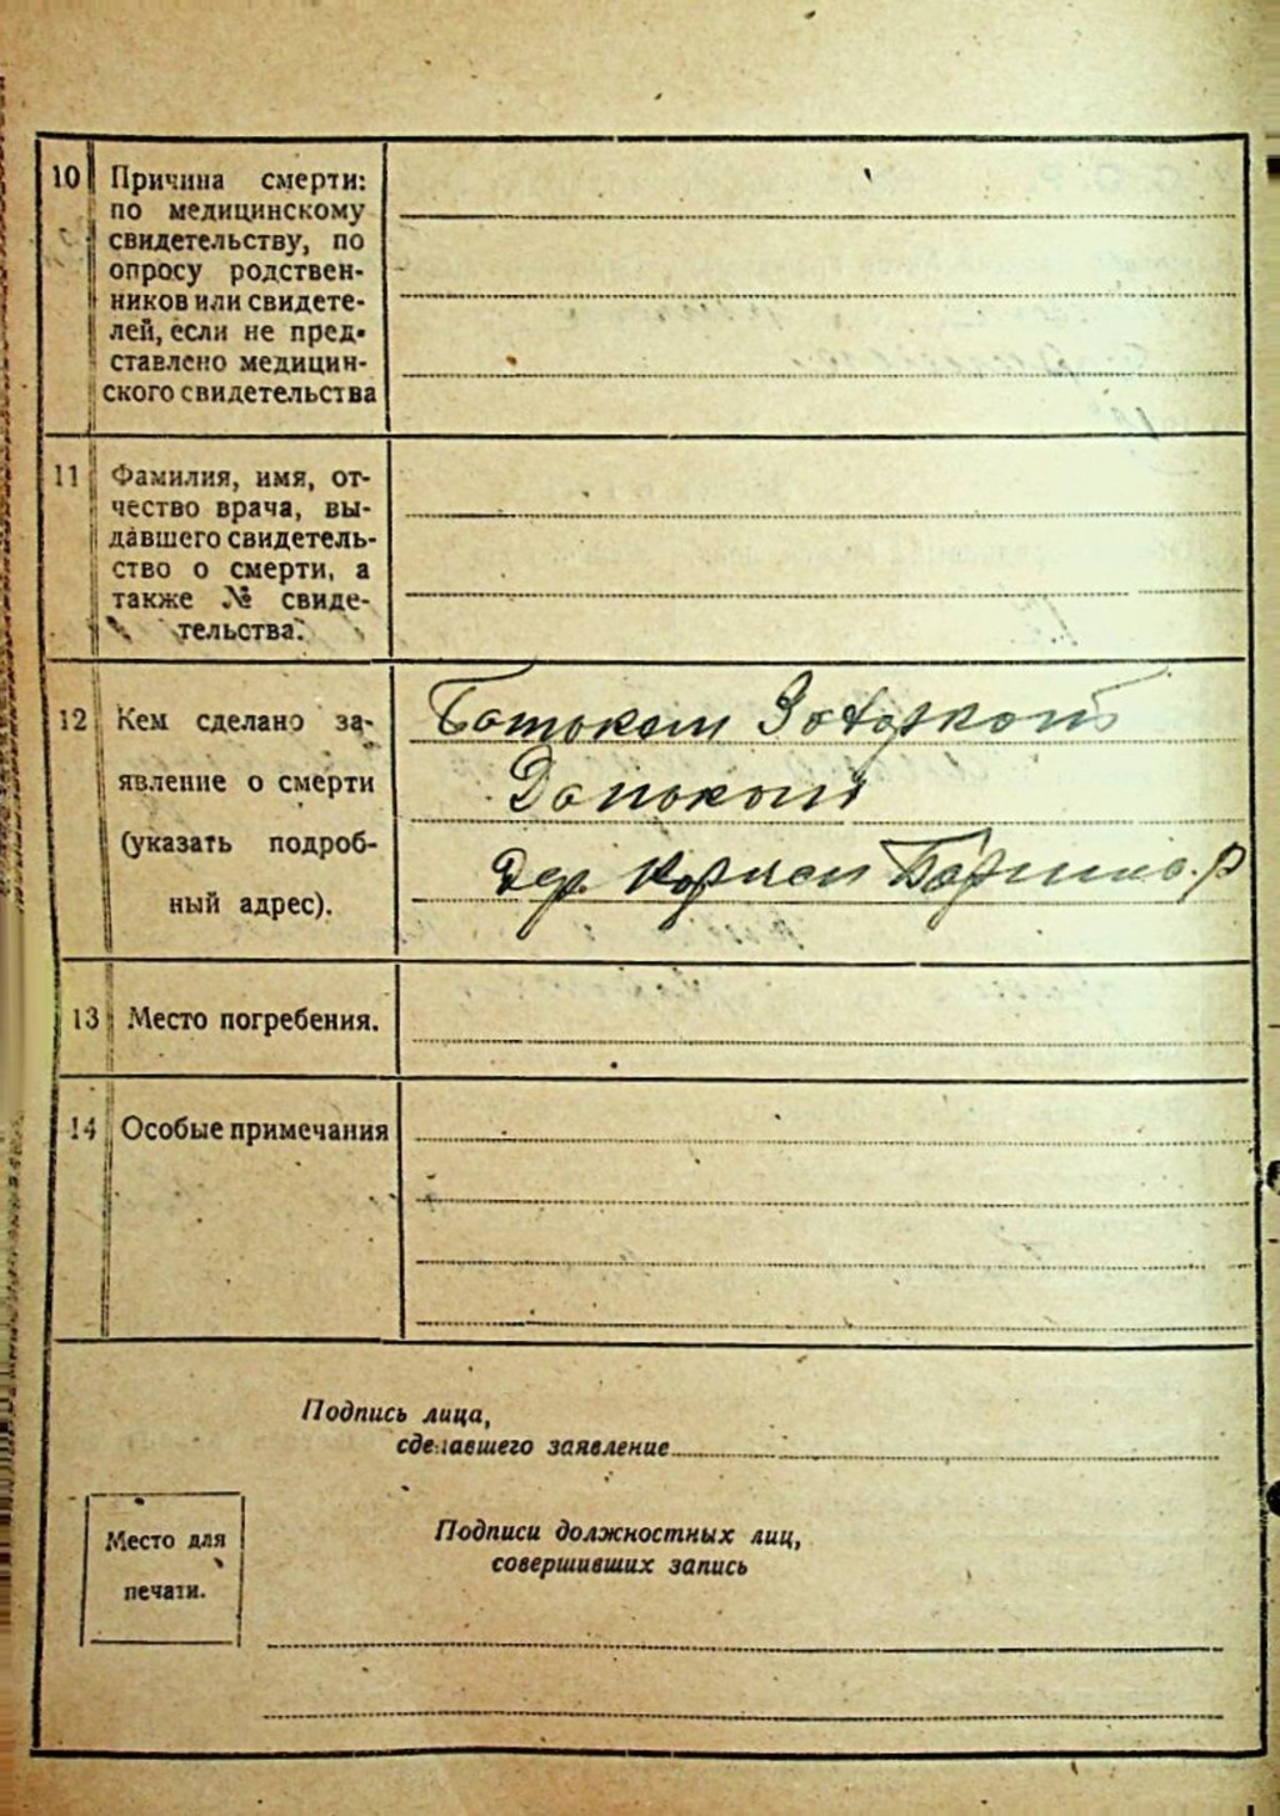 10 Причина смерти:
по медицинскому
свидетельству, по
опросу родствен-
ников или свидете-
лей, если не пред-
ставлено медицин-
ского свидетельства
11 Фамилия, имя, от-
чество врача, вы-
давшего свидетель-
ство о смерти, а
также № свиде-
тельства.
12 Кем сделано за-
явление о смерти
(указать подроб-
ный адрес).
Дер.
13 Место погребения.
14 Особые примечания
Подпись лица,
сделавшего заявление
Место для
печати.
Подписи должностных лиц,
совершивших запись